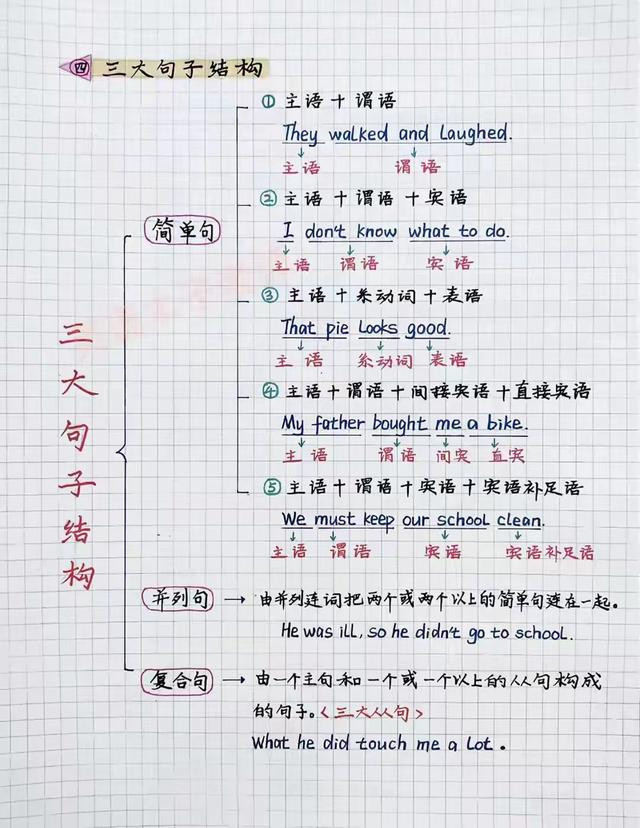 四 三大句子结构
① 主语＋谓语
They walked and Laughed.
主语 谓语
② 主语＋谓语＋宾语
简单句
I don't know what to do.
主语 谓语 宾语
③ 主语＋系动词＋表语
That pie Looks good.
主语 系动词 表语
三大句子结构
④ 主语＋谓语＋间接宾语＋直接宾语
My father bought me a bike.
主语 谓语 间宾 直宾
⑤ 主语＋谓语＋宾语＋宾语补足语
We must keep our school clean.
主语 谓语 宾语 宾语补足语
并列句 → 由并列连词把两个或两个以上的简单句连在一起。
He was ill, so he didn't go to school.
复合句 → 由一个主句和一个或一个以上的从句构成
的句子。〈三大从句〉
What he did touch me a Lot.